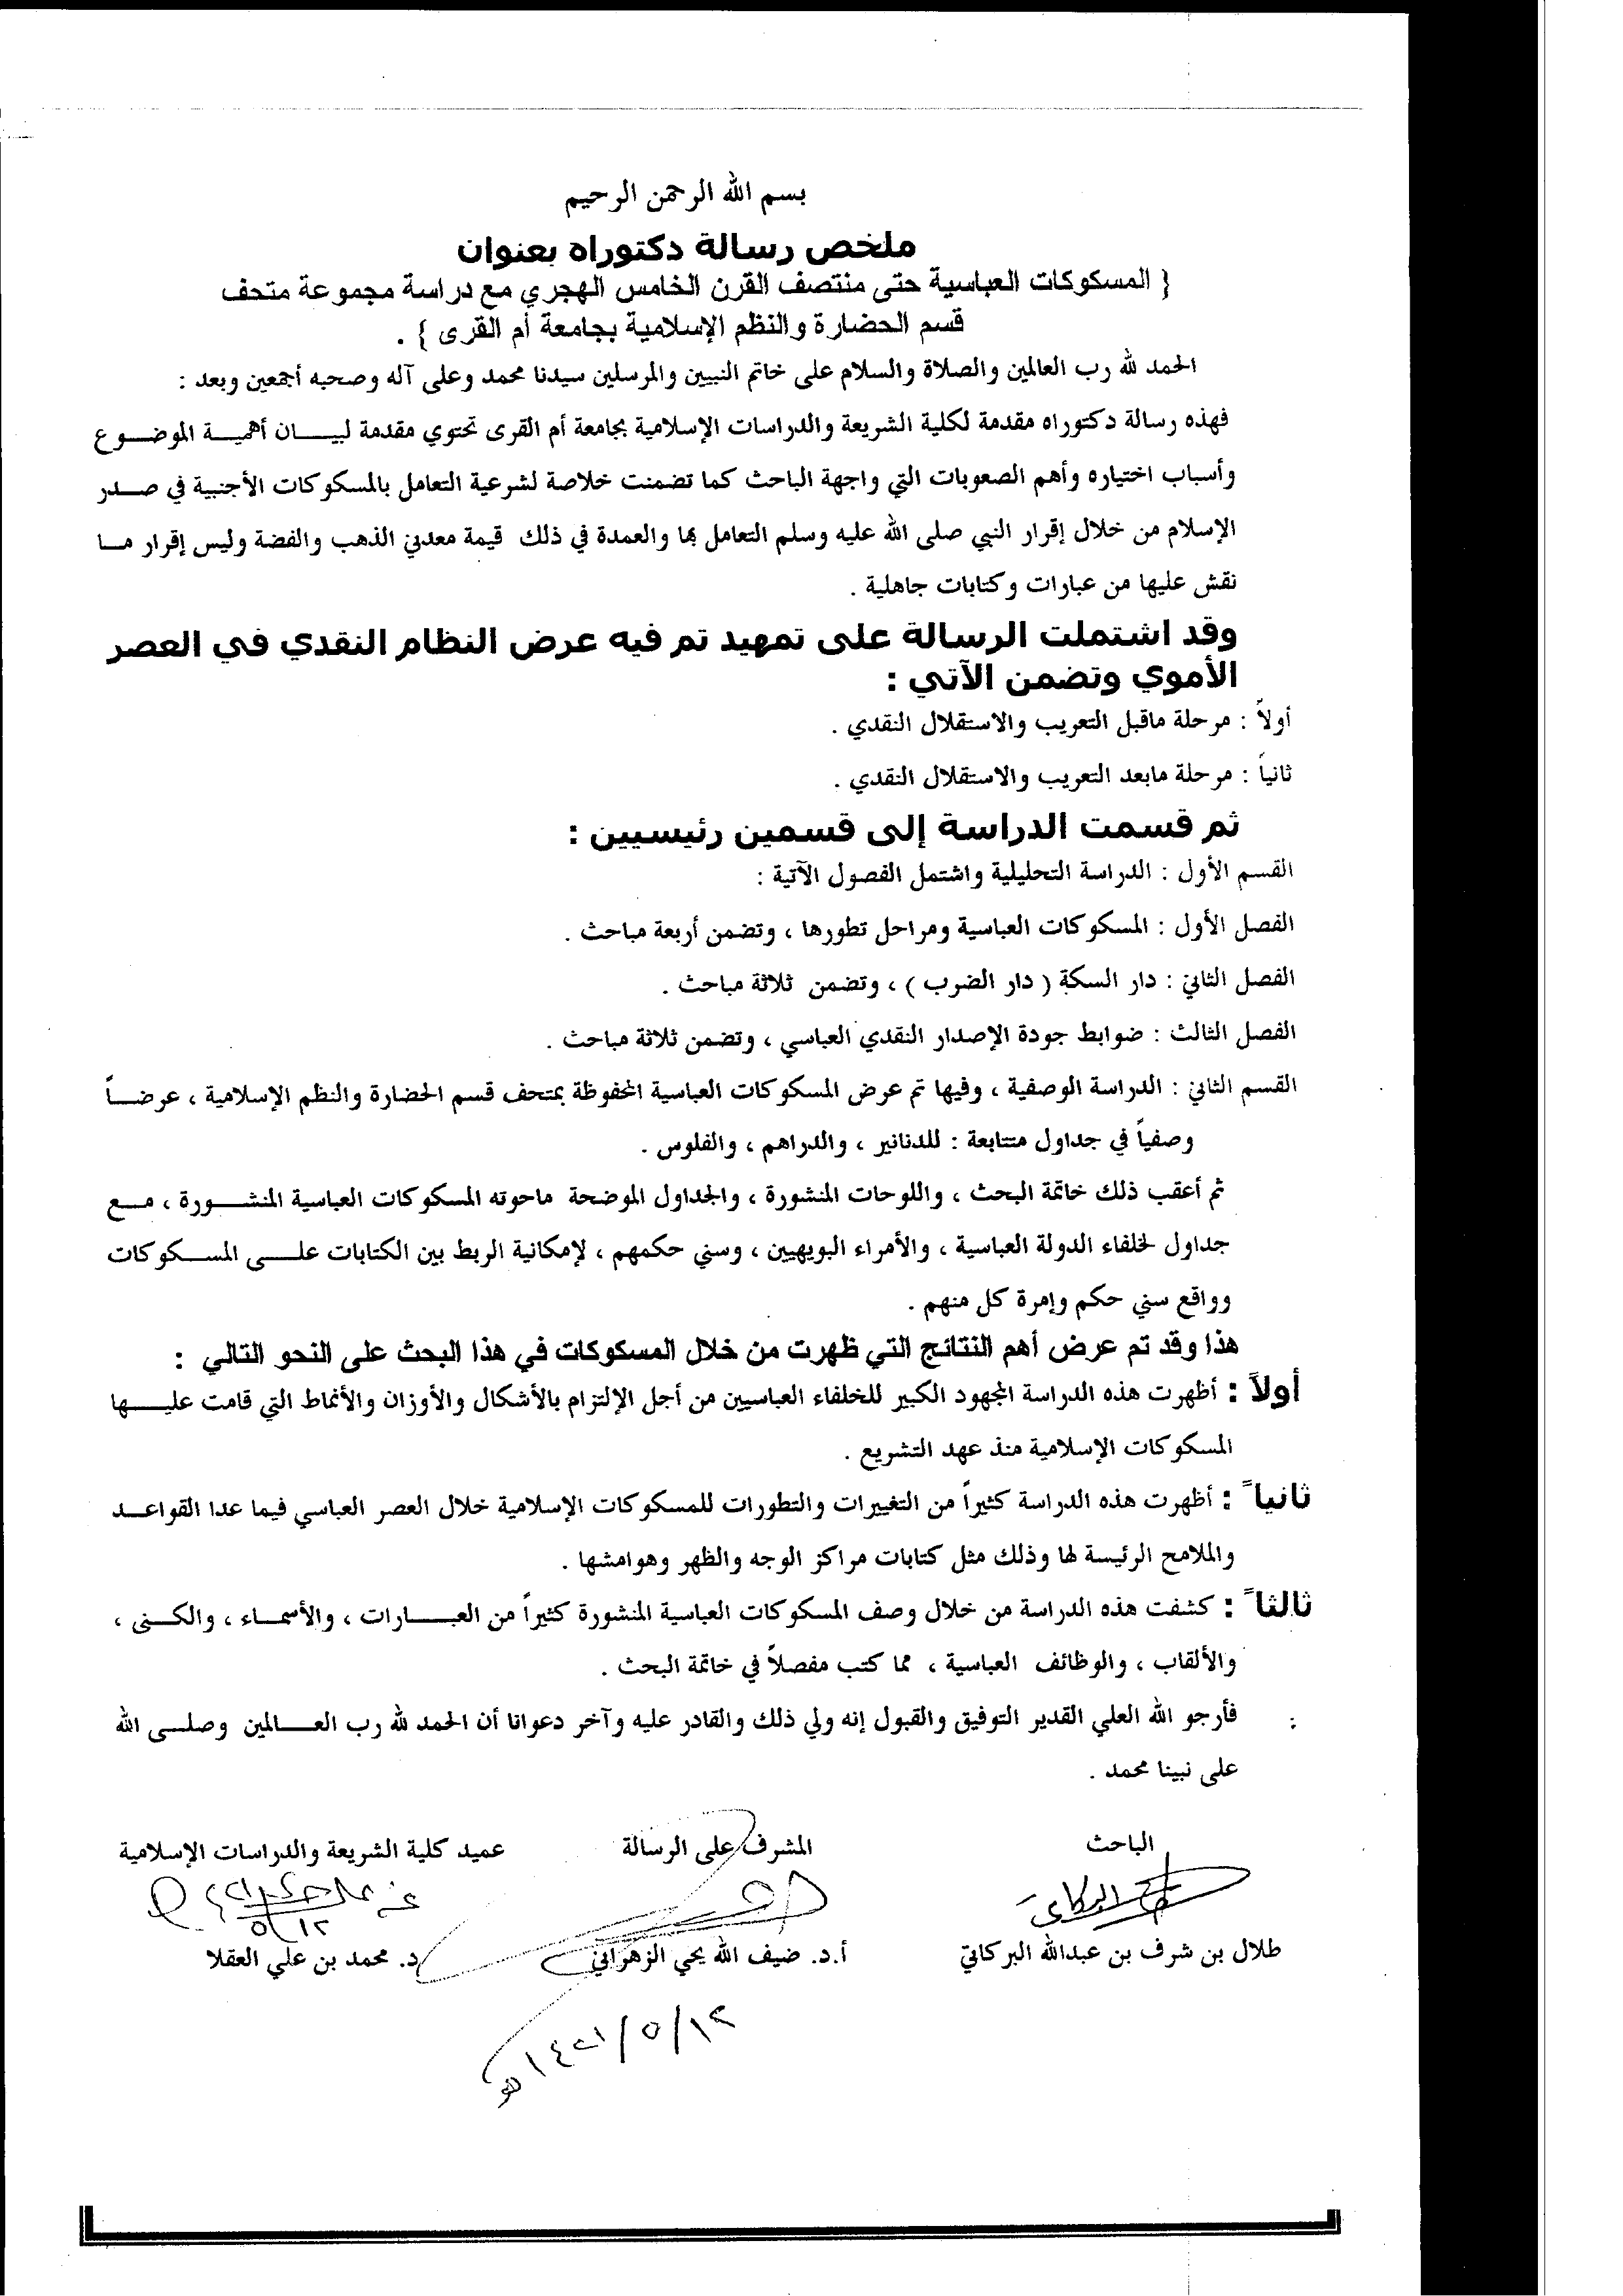 بسم الله الرحمن الرحيم
ملخص رسالة دكتوراه بعنوان
{ المسكوكات العباسية حتى منتصف القرن الخامس الهجري مع دراسة مجموعة متحف
قسم الحضارة والنظم الإسلامية بجامعة أم القرى } .
الحمد لله رب العالمين والصلاة والسلام على خاتم النبيين والمرسلين سيدنا محمد وعلى آله وصحبه أجمعين وبعد :
فهذه رسالة دكتوراه مقدمة لكلية الشريعة والدراسات الإسلامية بجامعة أم القرى تحتوي مقدمة لبيــــان أهميــة الموضــوع
وأسباب اختياره وأهم الصعوبات التي واجهة الباحث كما تضمنت خلاصة لشرعية التعامل بالمسكوكات الأجنبية في صــدر
الإسلام من خلال إقرار النبي صلى الله عليه وسلم التعامل بها والعمدة في ذلك قيمة معدني الذهب والفضة وليس إقرار مــا
نقش عليها من عبارات وكتابات جاهلية .
وقد اشتملت الرسالة على تمهيد تم فيه عرض النظام النقدي في العصر
الأموي وتضمن الآتي :
أولاً : مرحلة ماقبل التعريب والاستقلال النقدي .
ثانياً : مرحلة مابعد التعريب والاستقلال النقدي .
ثم قسمت الدراسة إلى قسمين رئيسيين :
القسم الأول : الدراسة التحليلية واشتمل الفصول الآتية :
الفصل الأول : المسكوكات العباسية ومراحل تطورها ، وتضمن أربعة مباحث .
الفصل الثاني : دار السكة ( دار الضرب ) ، وتضمن ثلاثة مباحث .
الفصل الثالث : ضوابط جودة الإصدار النقدي العباسي ، وتضمن ثلاثة مباحث .
القسم الثاني : الدراسة الوصفية ، وفيها تم عرض المسكوكات العباسية المحفوظة بمتحف قسم الحضارة والنظم الإسلامية ، عرضــاً
وصفياً في جداول متتابعة : للدنانير ، والدراهم ، والفلوس .
ثم أعقب ذلك خاتمة البحث ، واللوحات المنشورة ، والجداول الموضحة ماحوته المسكوكات العباسية المنشــــورة ، مــع
جداول لخلفاء الدولة العباسية ، والأمراء البويهيين ، وسني حكمهم ، لإمكانية الربط بين الكتابات علـــى المســكوكات
وواقع سني حكم وإمرة كل منهم .
هذا وقد تم عرض أهم النتائج التي ظهرت من خلال المسكوكات في هذا البحث على النحو التالي :
أولاً : أظهرت هذه الدراسة المجهود الكبير للخلفاء العباسيين من أجل الإلتزام بالأشكال والأوزان والأنماط التي قامت عليــــها
المسكوكات الإسلامية منذ عهد التشريع .
ثانياً : أظهرت هذه الدراسة كثيراً من التغييرات والتطورات للمسكوكات الإسلامية خلال العصر العباسي فيما عدا القواعــد
والملامح الرئيسة لها وذلك مثل كتابات مراكز الوجه والظهر وهوامشها .
ثالثاً : كشفت هذه الدراسة من خلال وصف المسكوكات العباسية المنشورة كثيراً من العبــــارات ، والأسمــاء ، والكــنى ،
والألقاب ، والوظائف العباسية ، مما كتب مفصلاً في خاتمة البحث .
فأرجو الله العلي القدير التوفيق والقبول إنه ولي ذلك والقادر عليه وآخر دعوانا أن الحمد لله رب العــــالمين وصلــى الله
على نبينا محمد .
الباحث المشرف على الرسالة عميد كلية الشريعة والدراسات الإسلامية
البركاتي
١٢/٥
طلال بن شرف بن عبدالله البركاتي أ.د. ضيف الله يحي الزهراني د. محمد بن علي العقلا
١٢/٥/١٤٢١هـ